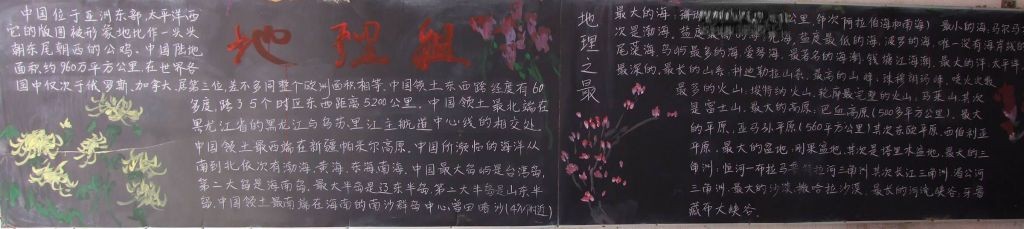 中国位于亚洲东部,太平洋西
它的版图被形象地比作一头头
朝东尾朝西的公鸡。中国陆地
面积约960万平方公里,在世界各
国中仅次于俄罗斯、加拿大,居第三位,差不多同整个欧洲面积相等。中国领土东西跨经度有60
多度,跨了5个时区东西距离5200公里。中国领土最北端在
黑龙江省的黑龙江与乌苏里江主航道中心线的相交处
中国领土最西端在新疆帕米尔高原。中国所濒临的海洋从
南到北依次有渤海、黄海、东海南海。中国最大岛屿是台湾岛,
第二大岛是海南岛。最大半岛是辽东半岛,第二大半岛是山东半
岛。中国领土最南端在海南的南沙群岛中心曾母暗沙(4°N附近)
地理组
地理之最
最大的海,珊瑚 公里,其次阿拉伯海和南海) 最小的海,马尔马
次是渤海,盐度 海,盐度最低的海,波罗的海,唯一没有海岸线的
尾藻海,岛屿最多的海,爱琴海,最著名的海潮,钱塘江海潮,最大的洋,太平洋
最深的,最长的山系,科迪勒拉山系,最高的山峰,珠穆朗玛峰,喷火次数
最多的火山,埃特纳火山,轮廓最完整的火山,马荣山,其次
是富士山,最大的高原,巴西高原(500多平方公里),最大
的平原,亚马孙平原(560平方公里)其次东欧平原,西伯利亚
平原,最大的盆地,刚果盆地,其次是塔里木盆地,最大的三
角洲,恒河-布拉马 拉河三角洲其次长江三角洲 湄公河
三角洲,最大的沙漠,撒哈拉沙漠,最长的河流峡谷,雅鲁
藏布大峡谷。